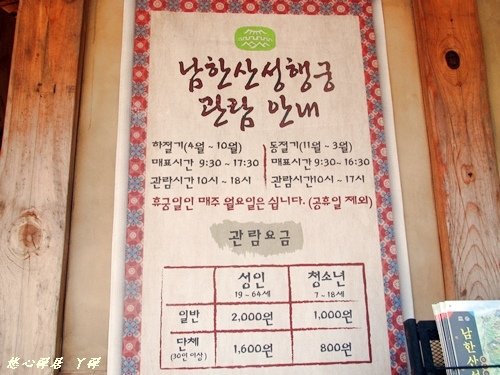 남한산성행궁
관람 안내
하절기(4월 ~ 10월)
매표시간 9:30 ~ 17:30
관람시간 10시 ~ 18시
동절기(11월 ~ 3월)
매표시간 9:30 ~ 16:30
관람시간 10시 ~ 17시
휴궁일인 매주 월요일은 쉽니다. (공휴일 제외)
관람요금
성인 청소년
19 ~ 64세 7 ~ 18세
일반 2,000원 1,000원
단체 1,600원 800원
(30인 이상)
남한산성
悠心禪居 丫禪